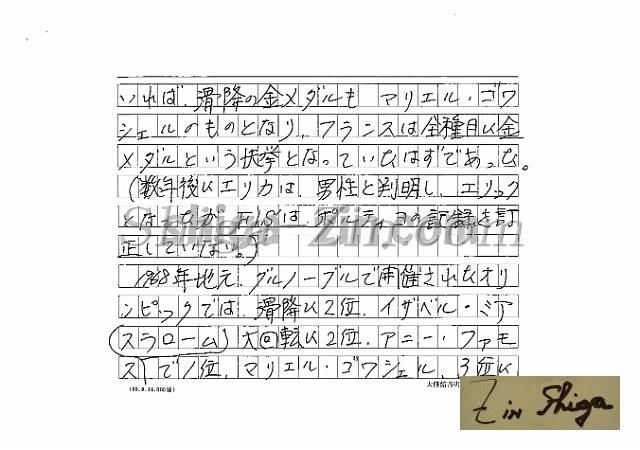 いれば、滑降の金メダルも マリエル・ゴワ
シェルのものとなり、フランスは全種目に金
メダルという快挙となっていたはずであった。
(数年後にエリカは、男性と判明し、エリック
となったがFISは、ポルティヨの記録を訂
正していない。)
Shiga-Zin.com
1968年地元、グルノーブルで開催されたオリ
ンピックでは、滑降に2位、イザベル・ミア
(スラローム)大回転に2位、アニー・ファモ
ス で1位、マリエル・ゴワシェル、3位に
Z in Shiga